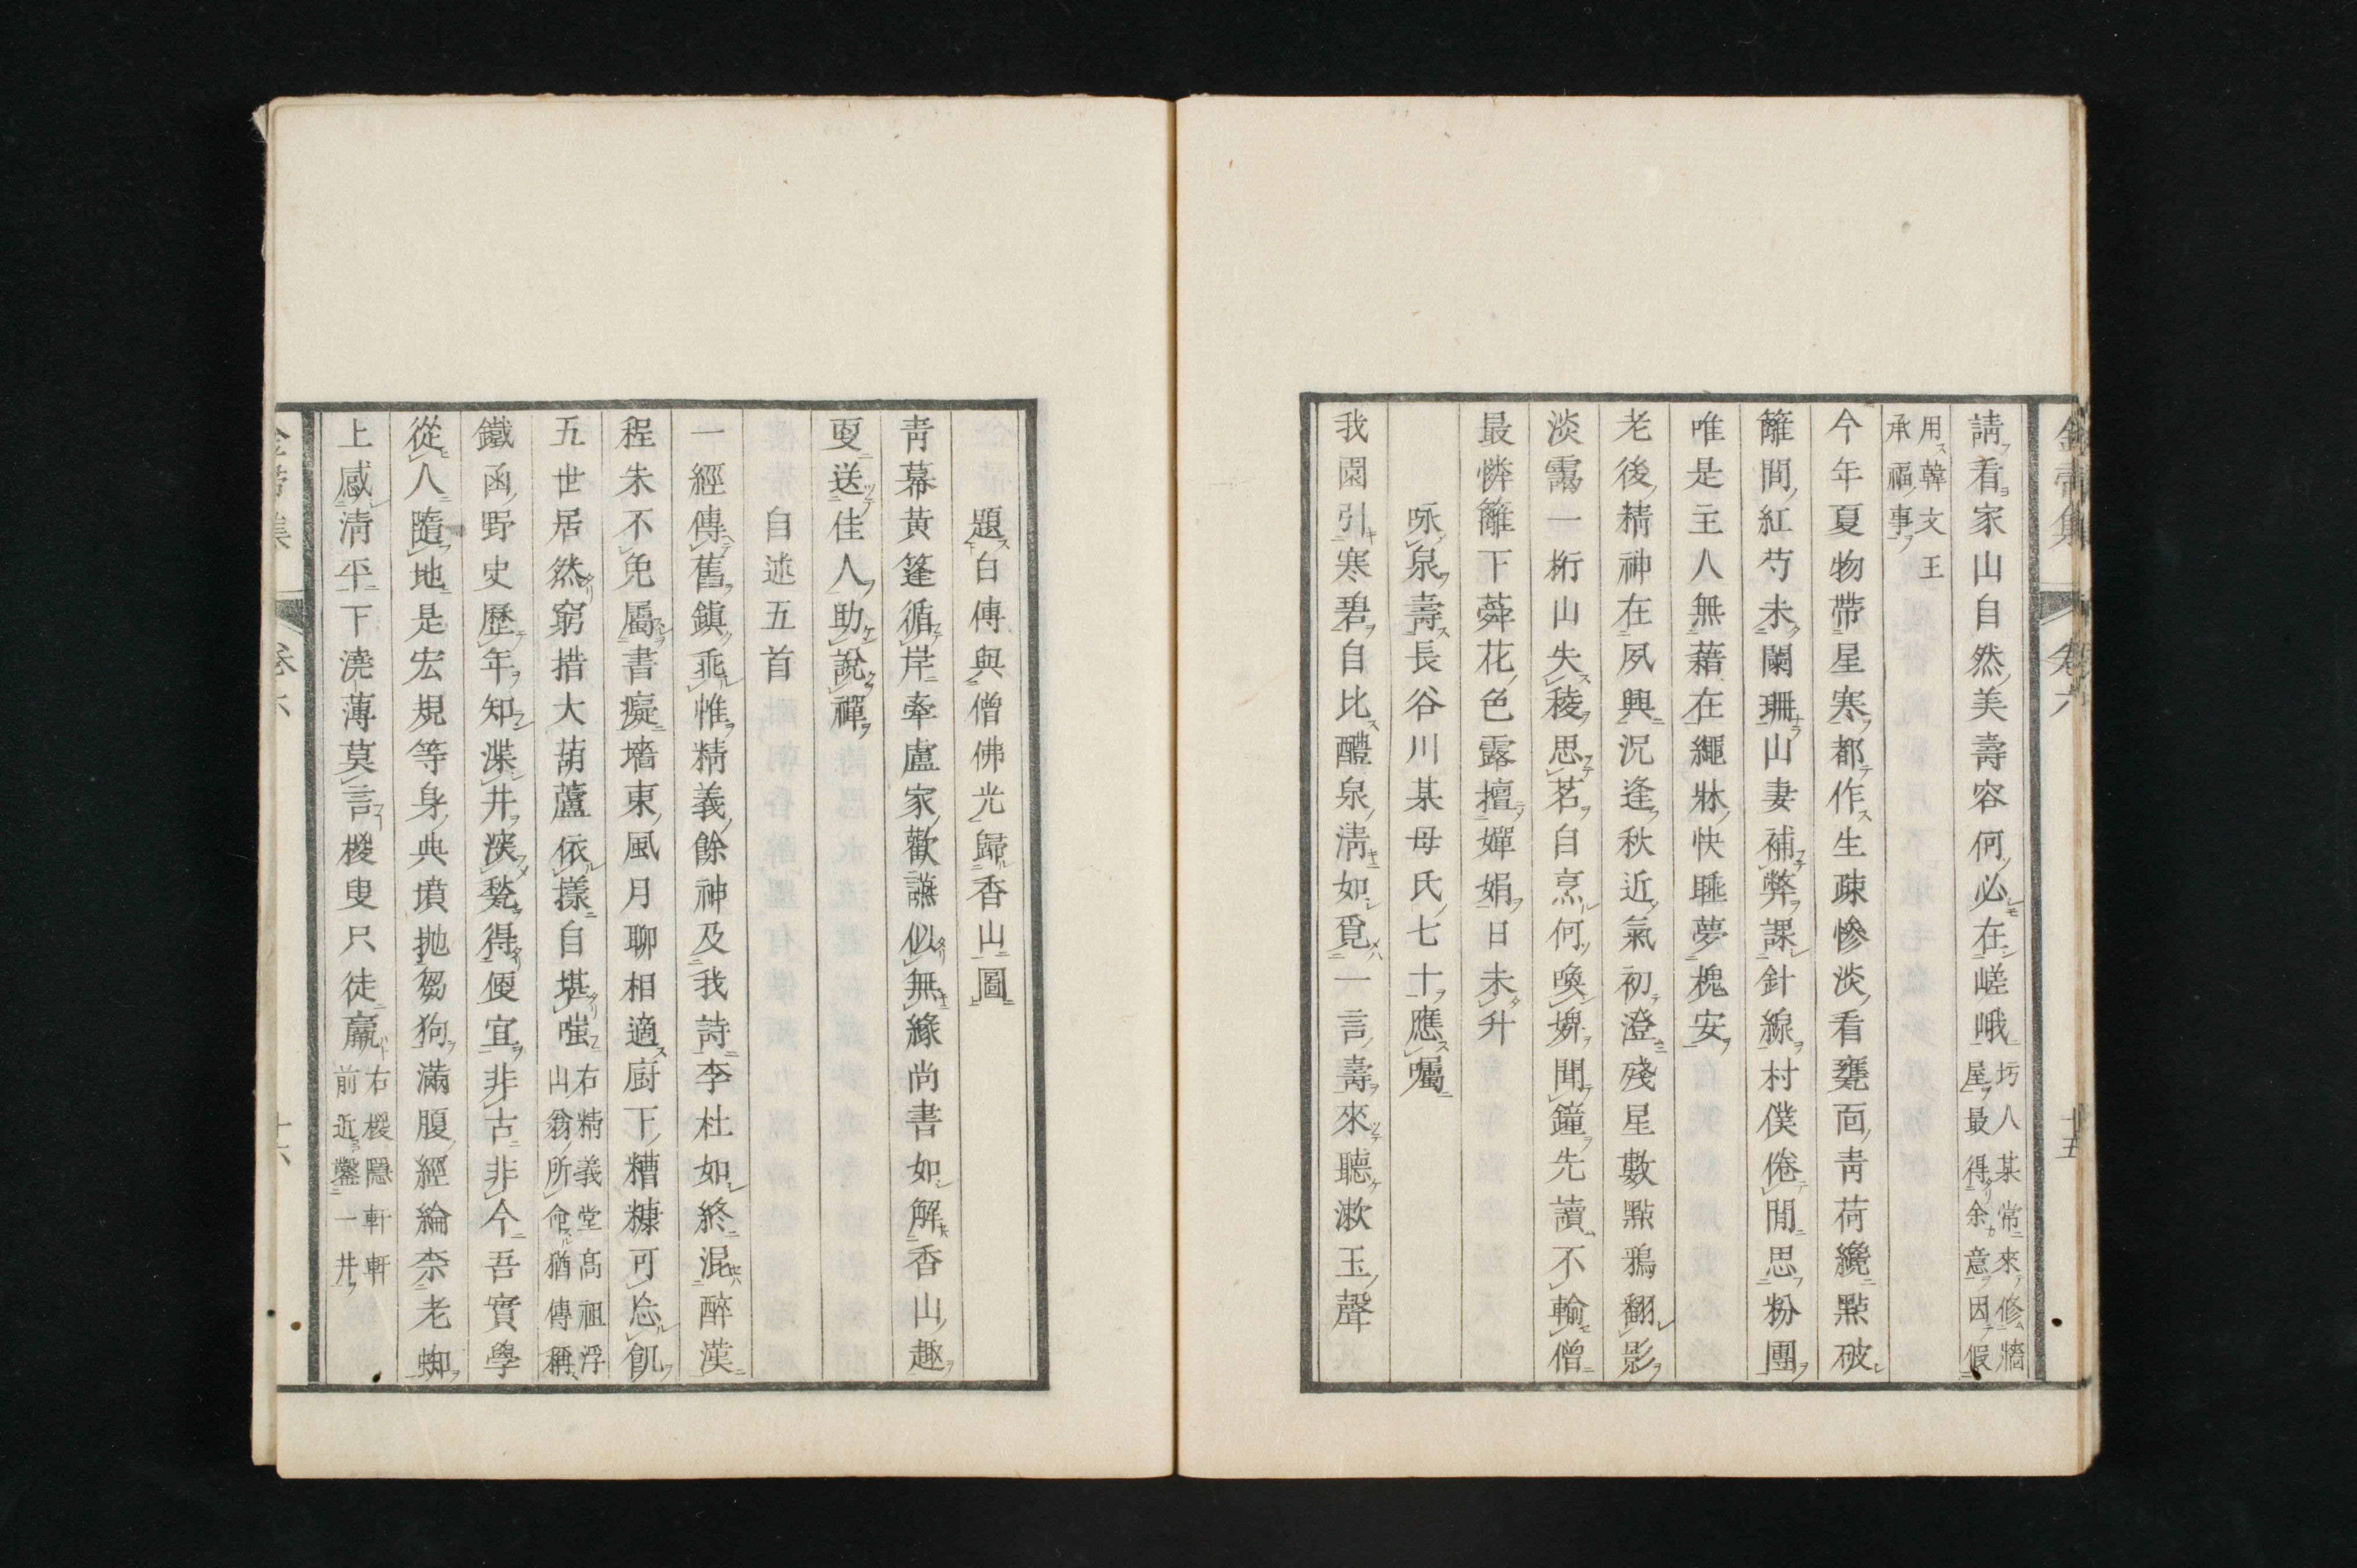 請看家山自然美壽容何必在嵯峨圬人某常來修牆
屋最得余意因假
用韓文王
承福事
今年夏物帶星寒都作生疎慘淡看甕面靑荷纔點破
籬間紅芍未闌珊山妻補弊課針線村僕倦閒思粉團
唯是主人無藉在繩牀快睡夢槐安
老後精神在夙興況逢秋近氣初澄殘星數點鴉翻影
淡靄一桁山失稜思茗自烹何喚婢聞鐘先讀不輸僧
最憐籬下蕣花色露擅嬋娟日未升
咏泉壽長谷川某母氏七十應囑
我園引寒碧自比醴泉淸如覓一言壽來聽漱玉聲
卷六
十五
題白傅與僧佛光歸香山圖
靑幕黃篷循岸牽盧家歡讌似無緣尚書如解香山趣
更送佳人助說禪
自述五首
一經傳舊鎭乖惟精義餘神及我詩李杜如終混醉漢
程朱不免屬書癡墻東風月聊相適厨下糟糠可忘飢
五世居然窮措大葫蘆依樣自堪嗤右精義堂高祖浮
山翁所命猶傳稱
鐵函野史歷年知渫井浹甃得便宜非古非今吾實學
從人隨地是宏規等身典墳拋芻狗滿腹經綸柰老蜘
上感淸平下澆薄莫言檆叟只徒羸右檆隱軒軒
前近鑿一井
卷六
十六